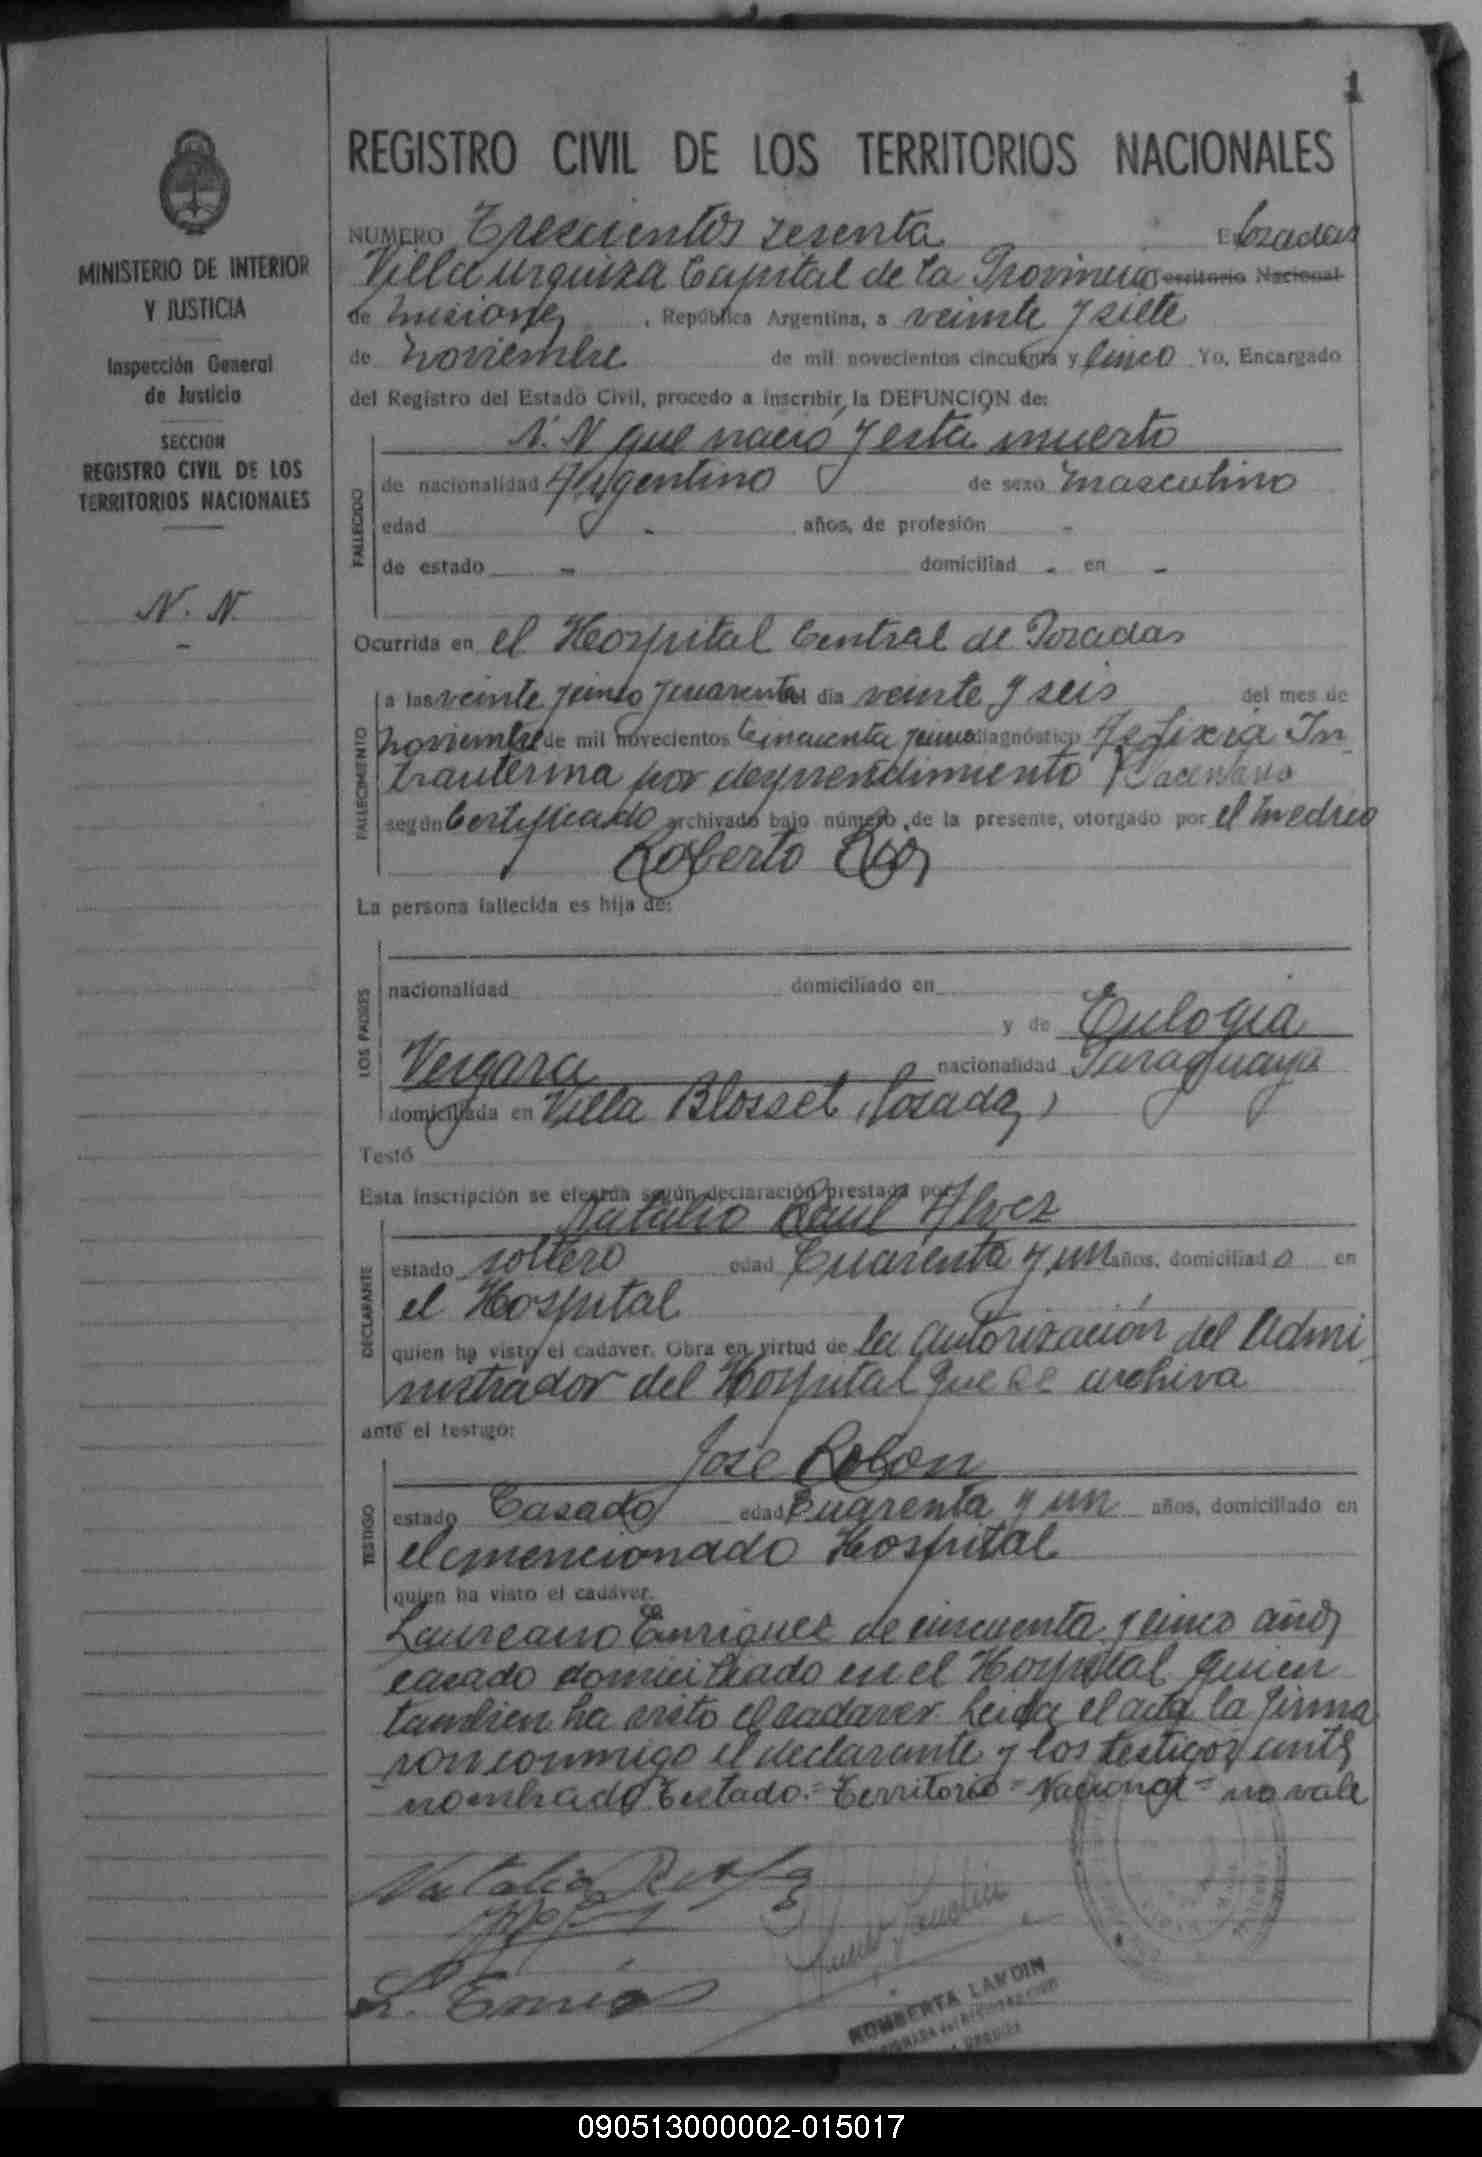 1
REGISTRO CIVIL DE LOS TERRITORIOS NACIONALES
MINISTERIO DE INTERIOR
Y JUSTICIA
Inspección General
de Justicia
SECCION
REGISTRO CIVIL DE LOS
TERRITORIOS NACIONALES
N. N.
-
NUMERO Trescientos sesenta En Posadas
Villa Urquiza Capital de la Provincia Territorio Nacional
de Misiones, República Argentina, a veinte y siete
de Noviembre de mil novecientos cincuenta y cinco Yo, Encargado
del Registro del Estado Civil, procedo a inscribir la DEFUNCION de:
FALLECIDO
N. N que nacio y esta muerto
de nacionalidad Argentino de sexo Masculino
edad - años, de profesión -
de estado - domiciliad - en -
Ocurrida en el Hospital Central de Posadas
FALLECIMIENTO
a las veinte y cinco y cuarenta del dia veinte y seis del mes de
Noviembre de mil novecientos Cincuenta y cinco diagnóstico Asfixia In
trauterina por desprendimiento Placentario
según Certificado archivado bajo número de la presente, otorgado por el Medico
Roberto Rios
La persona fallecida es hija de:
LOS PADRES
nacionalidad domiciliado en
y de Eulogia
Vergara nacionalidad Paraguaya
domiciliada en Villa Blosset (Posadas)
Testó
Esta inscripción se efectúa según declaración prestada por
DECLARANTE
Natalio Raul Alvez
estado soltero edad Cuarenta y un años, domiciliad o en
el Hospital
quien ha visto el cadáver. Obra en virtud de la autorización del Admi
nistrador del Hospital que se archiva
ante el testigo:
TESTIGO
José Rolon
estado Casado edad Cuarenta y un años, domiciliado en
el mencionado Hospital
quien ha visto el cadáver.
Laureano Enriquez de cincuenta y cinco años
casado domiciliado en el Hospital quien
tambien ha visto el cadaver. Leida el acta la firma
ron conmigo el declarante y los testigos ante
nombrado Testado:= Territorio = Nacional = no vale
L. Enrios
HOMBERTA LANDIN
090513000002-015017